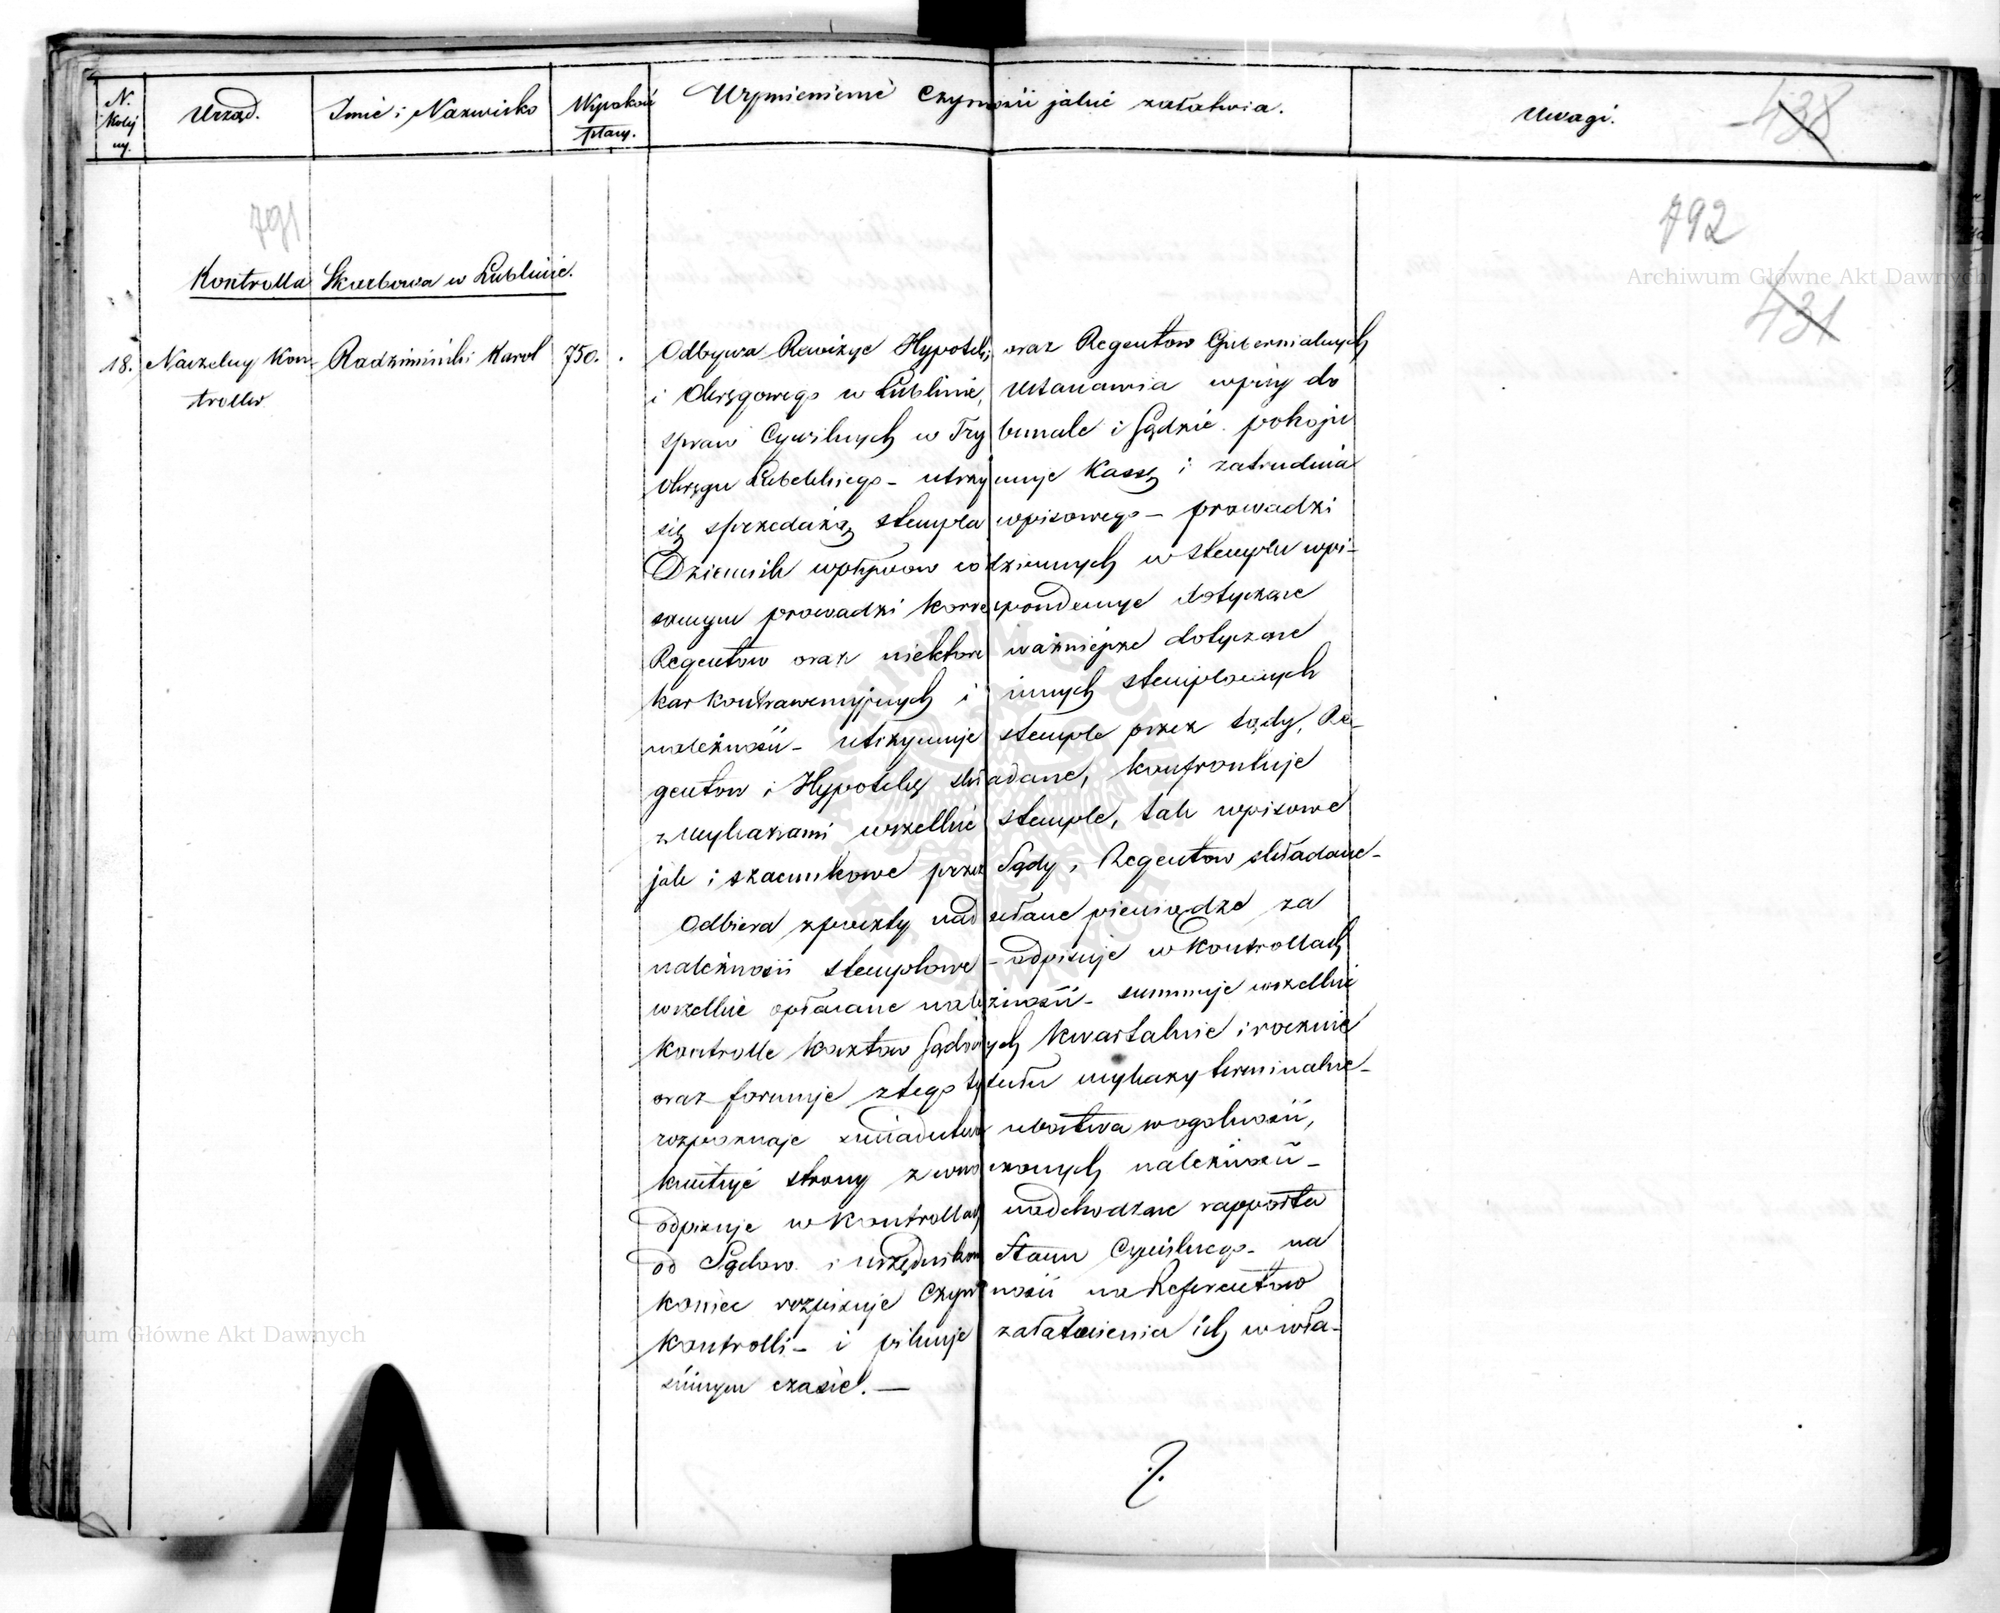 N. Kolej ny.
Urząd.
Imie i Nazwisko
Wysokość płacy.
Wymienienie czynności jakie załatwia.
Uwagi.
438
791
792
Archiwum Główne Akt Dawnych
431
Kontrolla Skarbowa w Lublinie.
18. Naczelny Kon-
troller
Radzimiński Karol
750.
Odbywa Rewizye Hypoteki oraz Regentow Gubernialnych
i Okręgowego w Lublinie, Ustanawia wpisy do
spraw Cywilnych w Trybunale i Sądzie pokoju
Okręgu Lubelskiego - utrzymuje Kassę i zatrudnia
się sprzedażą stempla wpisowego - prowadzi
Dziennik wpływow codziennych w stemplu wpi-
sowym prowadzi korrespondencye dotyczące
Regentow oraz niektore ważniejsze dotyczące
kar kontrawencyjnych i innych stemplowych
należności - utrzymuje stemple przez Sądy, Re-
gentow i Hypotekę składane, konfrontuje
z wykazami wszelkie stemple, tak wpisowe
jak i szacunkowe przez Sądy i Regentow składane -
Odbiera z poczty nadsełane pieniądze za
należności stemplowe - odpisuje w kontrollach
wszelkie opłacane należności - summuje wszelkie
Kontrolle kosztow Sądowych kwartalnie i rocznie
oraz formuje z tego tytułu wykazy terminalne -
rozpoznaje świadectwa ubóstwa w ogolności,
kwituje strony z wnoszonych należności -
odpisuje w kontrollach nadchodzące rapporta
od Sądow i urzędnikow Stanu Cywilnego - na
koniec rozpisuje czynności na Referentow
Kontrolli - i pilnuje załatwienia ich w wła-
ściwym czasie. —
Archiwum Główne Akt Dawnych